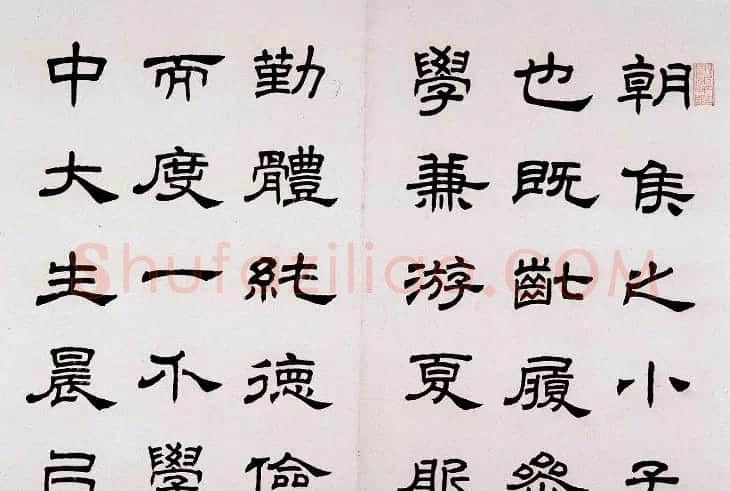 朝侯之小子
也既齔履參
學兼游夏服
勤體純德儉
而度一不學
中大生晨
Shufaziliao.COM